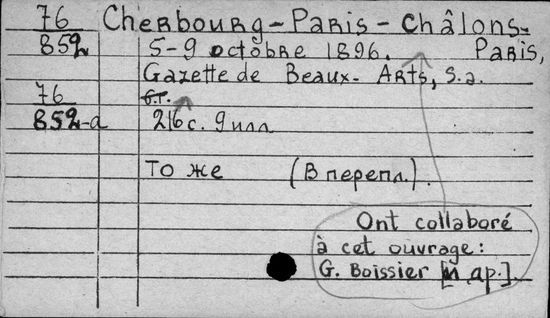 76 Cherbourg-Paris-Châlons.
852 5-9 octobre 1896. Paris,
Gazette de Beaux-Arts, s.a.
76
852-a 216 с. 9 илл
То же (В перепл.).
Ont collaboré
à cet ouvrage:
G. Boissier [и др.]